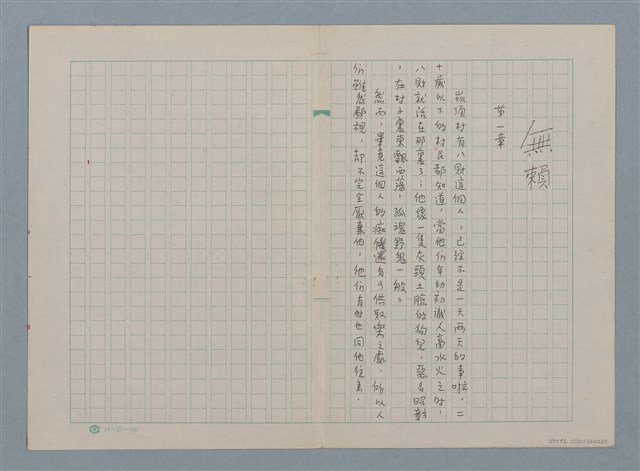 無賴
第一章
崁頂村有八財這個人，已經不是一天兩天的事啦，二
十歲以下的村民都知道，當他们年幼初識人畜水火之時，
八財就活在那裏了；他像一隻灰頭土臉的狗兒，惡名昭彰
，在村子裏東飄西蕩，孤魂野鬼一般。
然而，畢竟這個人的癡傻還有可供取樂之處，所以人
们雖然鄙視，却不完全厭棄他，他们有時也同他往來，